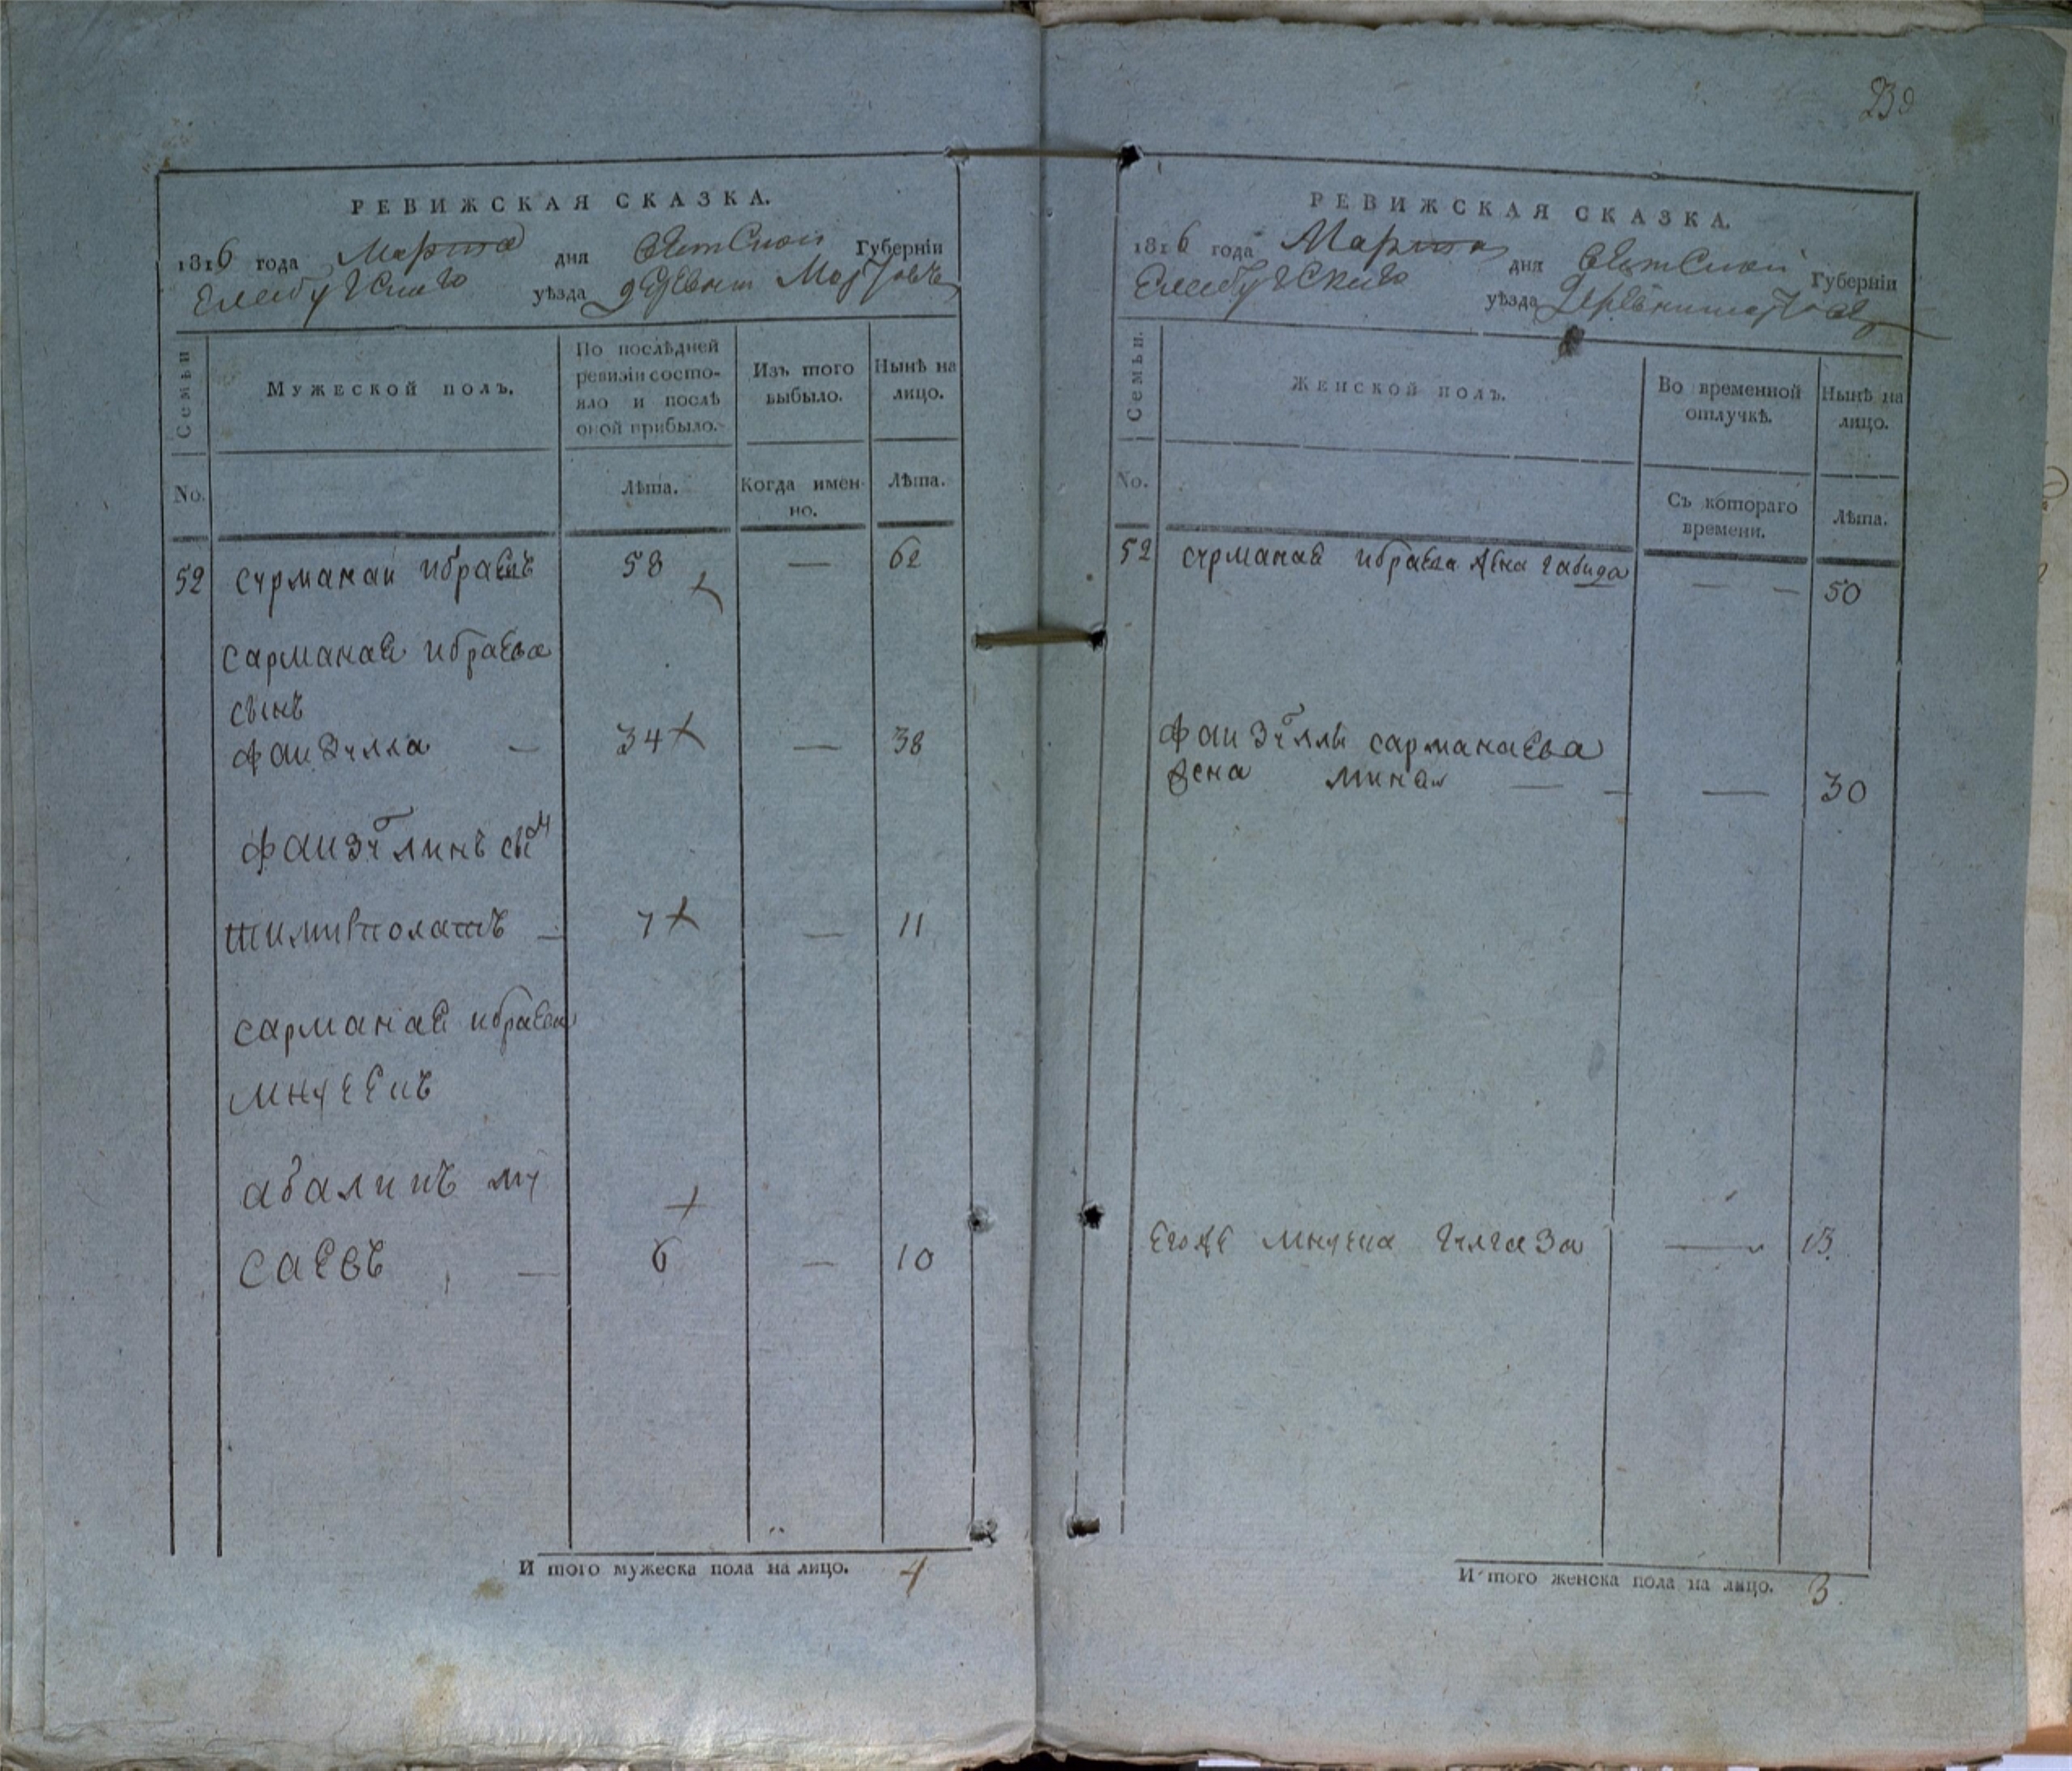 239
РЕВИЖСКАЯ СКАЗКА.
1816 года Марта дня Вятской Губерніи
Елабужскаго уѣзда деревни
Семьи
Мужеской полъ.
По послѣдней ревизіи состо-
яло и послѣ оной прибыло.
Изъ того выбыло.
Нынѣ на лицо.
No.
Лѣта.
Когда имен-
но.
Лѣта.
52 сурманай ибраевъ 58 — 62
сарманая ибраева
сынъ
фаизулла — 34 — 38
фаизуллинъ сынъ
тимиртолатъ — 7 — 11
сарманая ибраева
мнучекъ
абалинъ му
саевъ — 6 — 10
И того мужеска пола на лицо. 4
РЕВИЖСКАЯ СКАЗКА.
1816 года Марта дня Вятской Губерніи
Елабужскаго уѣзда деревни
Семьи.
Женской полъ.
Во временной отлучкѣ.
Нынѣ на лицо.
No.
Съ котораго времени.
Лѣта.
52 сурманая ибраева жена габида — — 50
фаизуллы сарманаева
жена — — — 30
егоже мнучка — 13.
И того женска пола на лицо. 3.